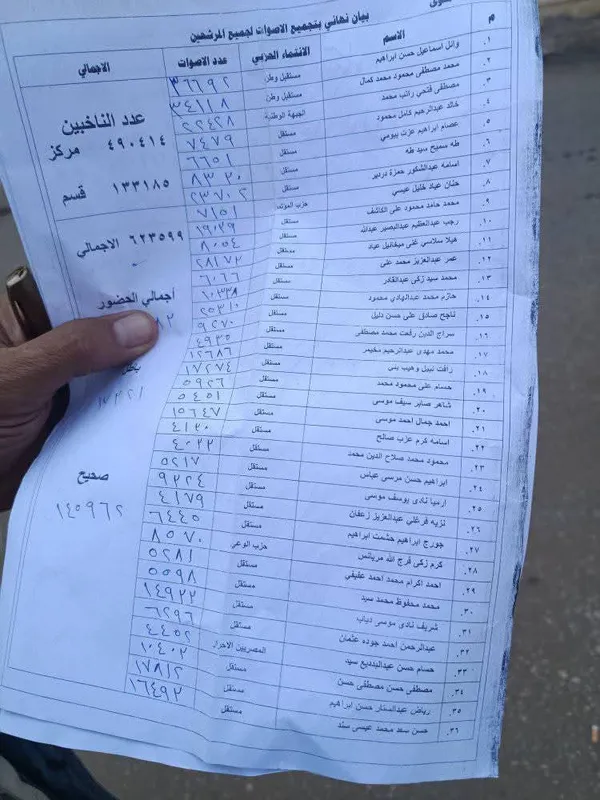 بيان نهائي بتجميع الاصوات لجميع المرشحين
م الاسم الانتماء الحزبي عدد الاصوات الاجمالي
١. وائل اسماعيل حسن ابراهيم مستقبل وطن ٣٦٦٩٢
٢. محمد مصطفى محمود محمد كمال مستقبل وطن ٣٤١١٨
٣. مصطفى فتحي راتب محمد الجبهة الوطنية ٢٢٤٢٨
٤. خالد عبدالرحيم كامل محمود مستقل ٧٤٧٩
٥. عصام ابراهيم عزت بيومي مستقل ٦٦٥١
٦. طه سميح سيد طه مستقل ٨٣٢٠
٧. اسامه عبدالشكور حمزة دردير مستقل ٢٣٧٠٢
٨. حنان عياد خليل عيسي حزب المؤتمر ٧١٥١
٩. محمد حامد محمود على الكاشف مستقل ١٩١٢٩
١٠. رجب عبدالعظيم عبدالبصير عبدالله مستقل ٨٠٥٤
١١. هيلا سلاسي غنى ميخائيل عياد مستقل ٢٨١٧٢
١٢. عمر عبدالعزيز محمد على مستقل ٦٠٦٦
١٣. محمد سيد زكى عبدالقادر مستقل ٢٠٣٣٨
١٤. حازم محمد عبدالهادي محمود مستقل ٢٥٣١٠
١٥. ناجح صادق على حسن دليل مستقل ٩٢٧٠
١٦. سراج الدين رفعت محمد مصطفى مستقل ٤٩٣٥
١٧. محمد مهدى عبدالرحيم مخيمر مستقل ١٢٦٨٦
١٨. رافت نبيل وهيب بنى مستقل ١٧٢٧٤
١٩. حسام على محمود محمد مستقل ٥٩٢٦
٢٠. شاهر صابر سيف موسى مستقل ٥٤٥١
٢١. احمد جمال احمد موسى مستقل ١٥٦٤٧
٢٢. اسامه كرم عزب صالح مستقل ٤١٢٠
٢٣. محمود محمد صلاح الدين محمد مستقل ٤٠٢٢
٢٤. ابراهيم حسن مرسى عباس مستقل ٥٢١٧
٢٥. ارميا نادى يوسف موسى مستقل ٩٢٢٤
٢٦. نزيه فرغلي عبدالعزيز زعفان مستقل ٤١٧٩
٢٧. جورج ابراهيم حشمت ابراهيم حزب الوعي ٦٤٤٥
٢٨. كرم زكى فرج الله مرياس مستقل ٨٥٧٠
٢٩. احمد اكرام محمد احمد عفيفي مستقل ٥٢٨١
٣٠. محمد محفوظ محمد سيد مستقل ٥٥٩٨
٣١. شريف نادى موسى دياب مستقل ١٤٩٢٢
٣٢. عبدالرحمن احمد جوده عثمان مستقل ٦٢٩٦
٣٣. حسام حسن عبدالبديع سيد المصريين الاحرار ٤٤٥٢
٣٤. مصطفى حسن مصطفى حسن مستقل ١٠٤٠٢
٣٥. رياض عبدالستار حسن ابراهيم مستقل ١٧٨١٢
٣٦. حسن سعد محمد عيسى سند مستقل ١٦٤٩٢
عدد الناخبين
٤٩٠٤١٤ مركز
١٣٣١٨٥ قسم
٦٢٣٥٩٩ الاجمالي
أجمالي الحضور
صحيح
١٤٥٩٦٢